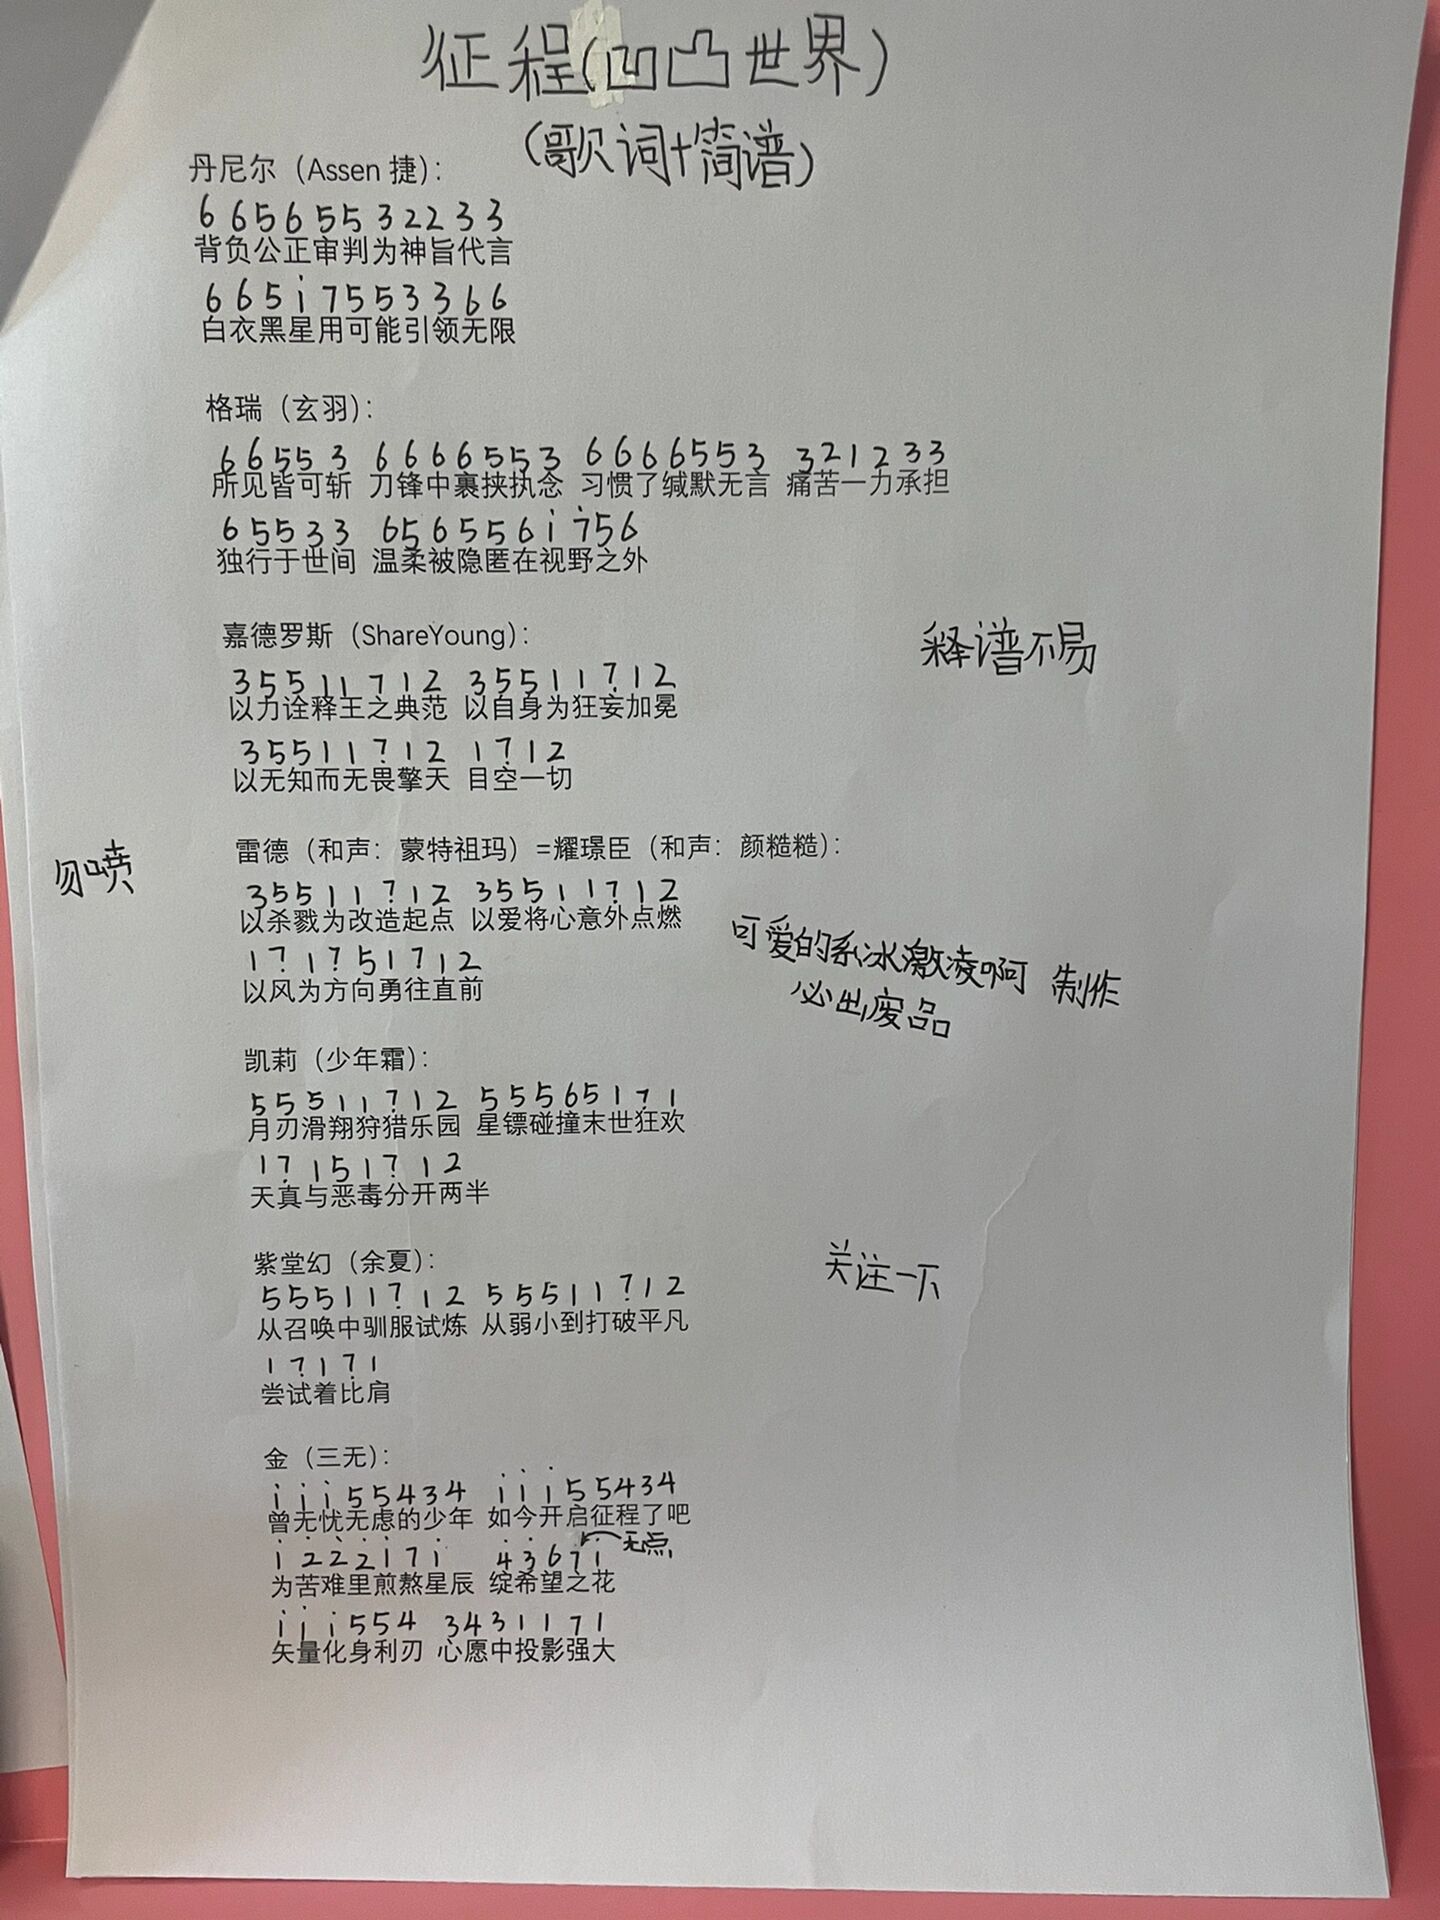 征程(凹凸世界)
(歌词+简谱)
丹尼尔（Assen 捷）：
6 6 5 6 5 5 3 2 2 3 3
背负公正审判为神旨代言
6 6 5 i 7 5 5 3 3 6 6
白衣黑星用可能引领无限
格瑞（玄羽）：
6 6 5 5 3 6 6 6 6 5 5 3 6 6 6 6 5 5 3 3 2 1 2 3 3
所见皆可斩 刀锋中裹挟执念 习惯了缄默无言 痛苦一力承担
6 5 5 3 3 6 5 6 5 5 6 i 7̇ 5 6
独行于世间 温柔被隐匿在视野之外
嘉德罗斯（ShareYoung）：
3 5 5 1 1 7 1 2 3 5 5 1 1 7̣ 1 2
以力诠释王之典范 以自身为狂妄加冕
释谱不易
3 5 5 1 1 7̣ 1 2 1 7̣ 1 2
以无知而无畏擎天 目空一切
雷德（和声：蒙特祖玛）=耀璟臣（和声：颜糙糙）：
勿喷
3 5 5 1 1 7̣ 1 2 3 5 5 1 1 7̣ 1 2
以杀戮为改造起点 以爱将心意外点燃
1 7̣ 1 7̣ 5 1 7̣ 1 2
以风为方向勇往直前
可爱的系冰激凌啊 制作
必出废品
凯莉（少年霜）：
5 5 5 1 1 7̣ 1 2 5 5 5 6 5 1 7 1
月刃滑翔狩猎乐园 星镖碰撞末世狂欢
1 7̣ 1 5 1 7̣ 1 2
天真与恶毒分开两半
紫堂幻（余夏）：
5 5 5 1 1 7̣ 1 2 5 5 5 1 1 7̣ 1 2
从召唤中驯服试炼 从弱小到打破平凡
关注一下
1 7̣ 1 7̣ 1
尝试着比肩
金（三无）：
i i i 5 5 4 3 4 i i i 5 5 4 3 4
曾无忧无虑的少年 如今开启征程了吧
无点
i 2̇ 2̇ 2̇ i 7 i 4̇ 3̇ 6 7 i
为苦难里煎熬星辰 绽希望之花
i i i 5 5 4 3 4 3 1 1 7 1
矢量化身利刃 心愿中投影强大